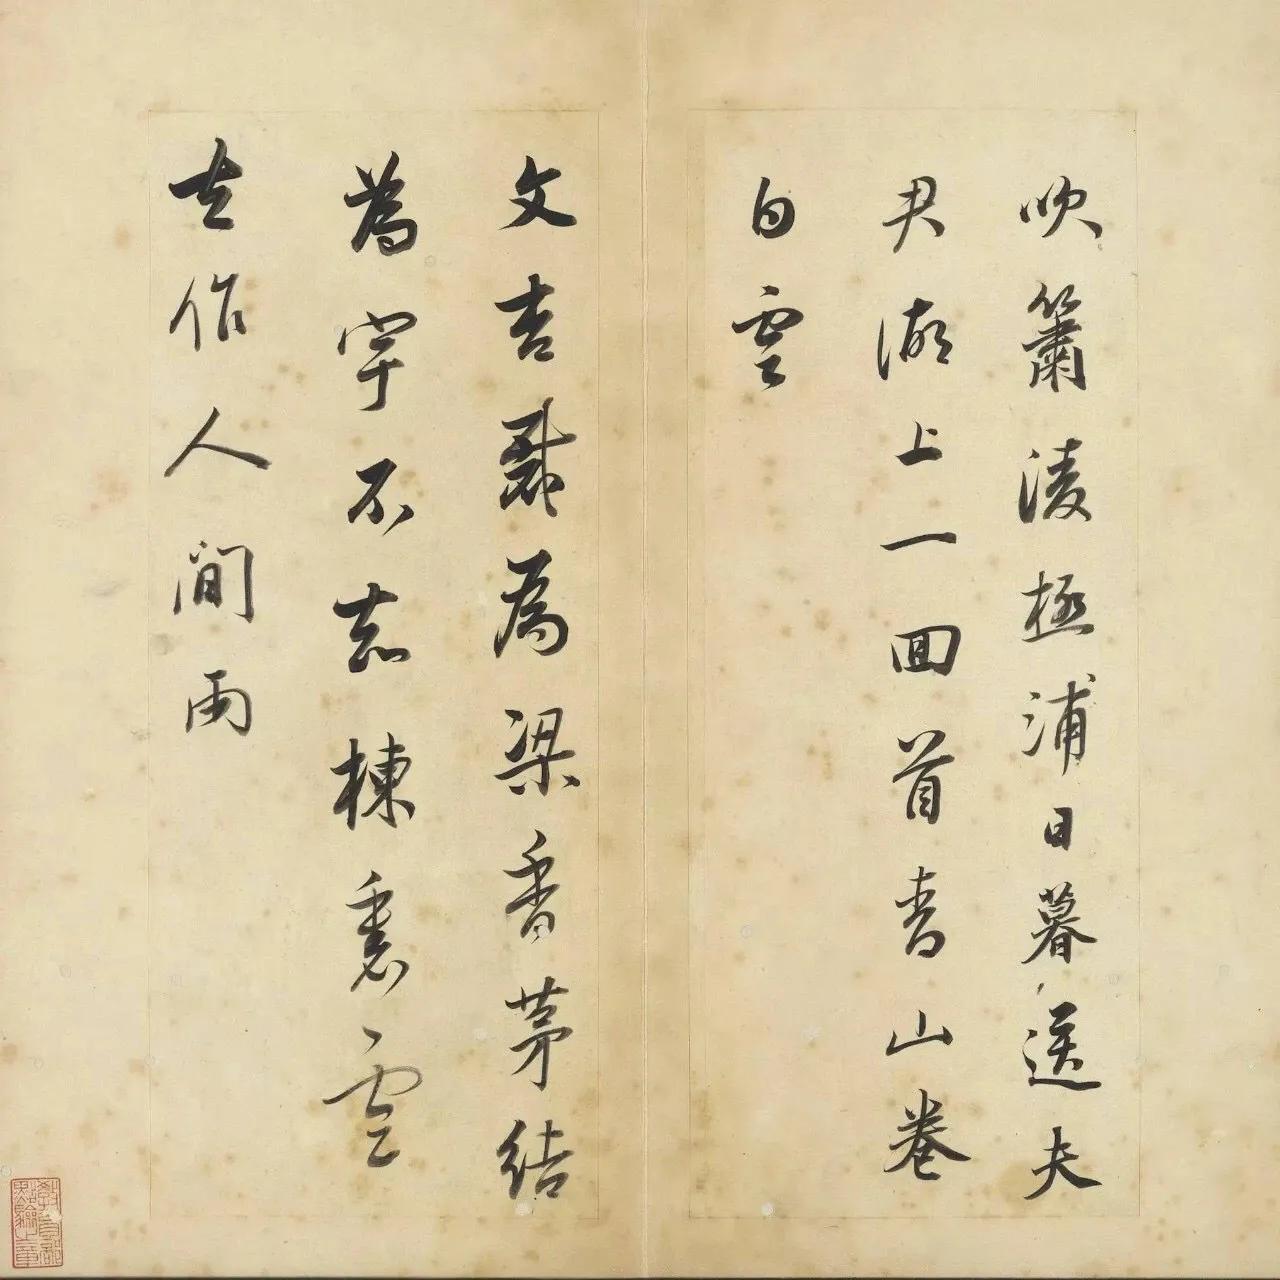 吹簫淩極浦日暮送夫
君湖上一回首青山卷
白雲
文杏裁為梁香茅結
為宇不知棟裏雲
去作人間雨
教育部點驗之章